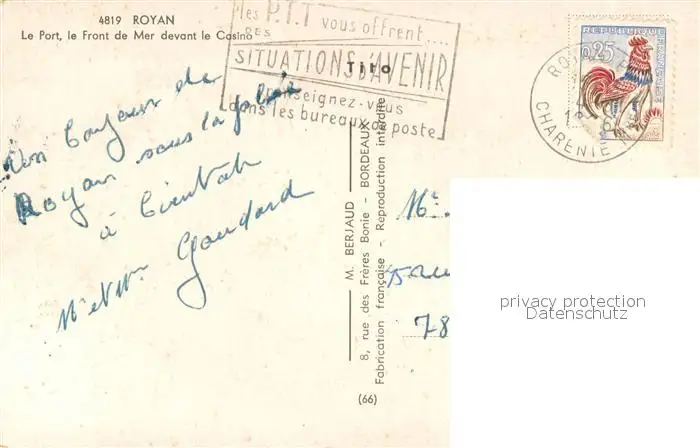 4819 ROYAN
Le Port, le Front de Mer devant le Casino
les P.T.T vous offrent....
DES
SITUATIONS D'AVENIR
Renseignez-vous
dans les bureaux de poste
Tito
0,25
REPUBLIQUE FRANÇAISE
RO
CHARENTE
Un bonjour de
Royan sous la pluie
à bientôt
Mr et Mme Gaudard
M. BERJAUD - BORDEAUX
8, rue des Frères Bonie -
Fabrication française - Reproduction interdite
(66)
Mr.
78
privacy protection
Datenschutz